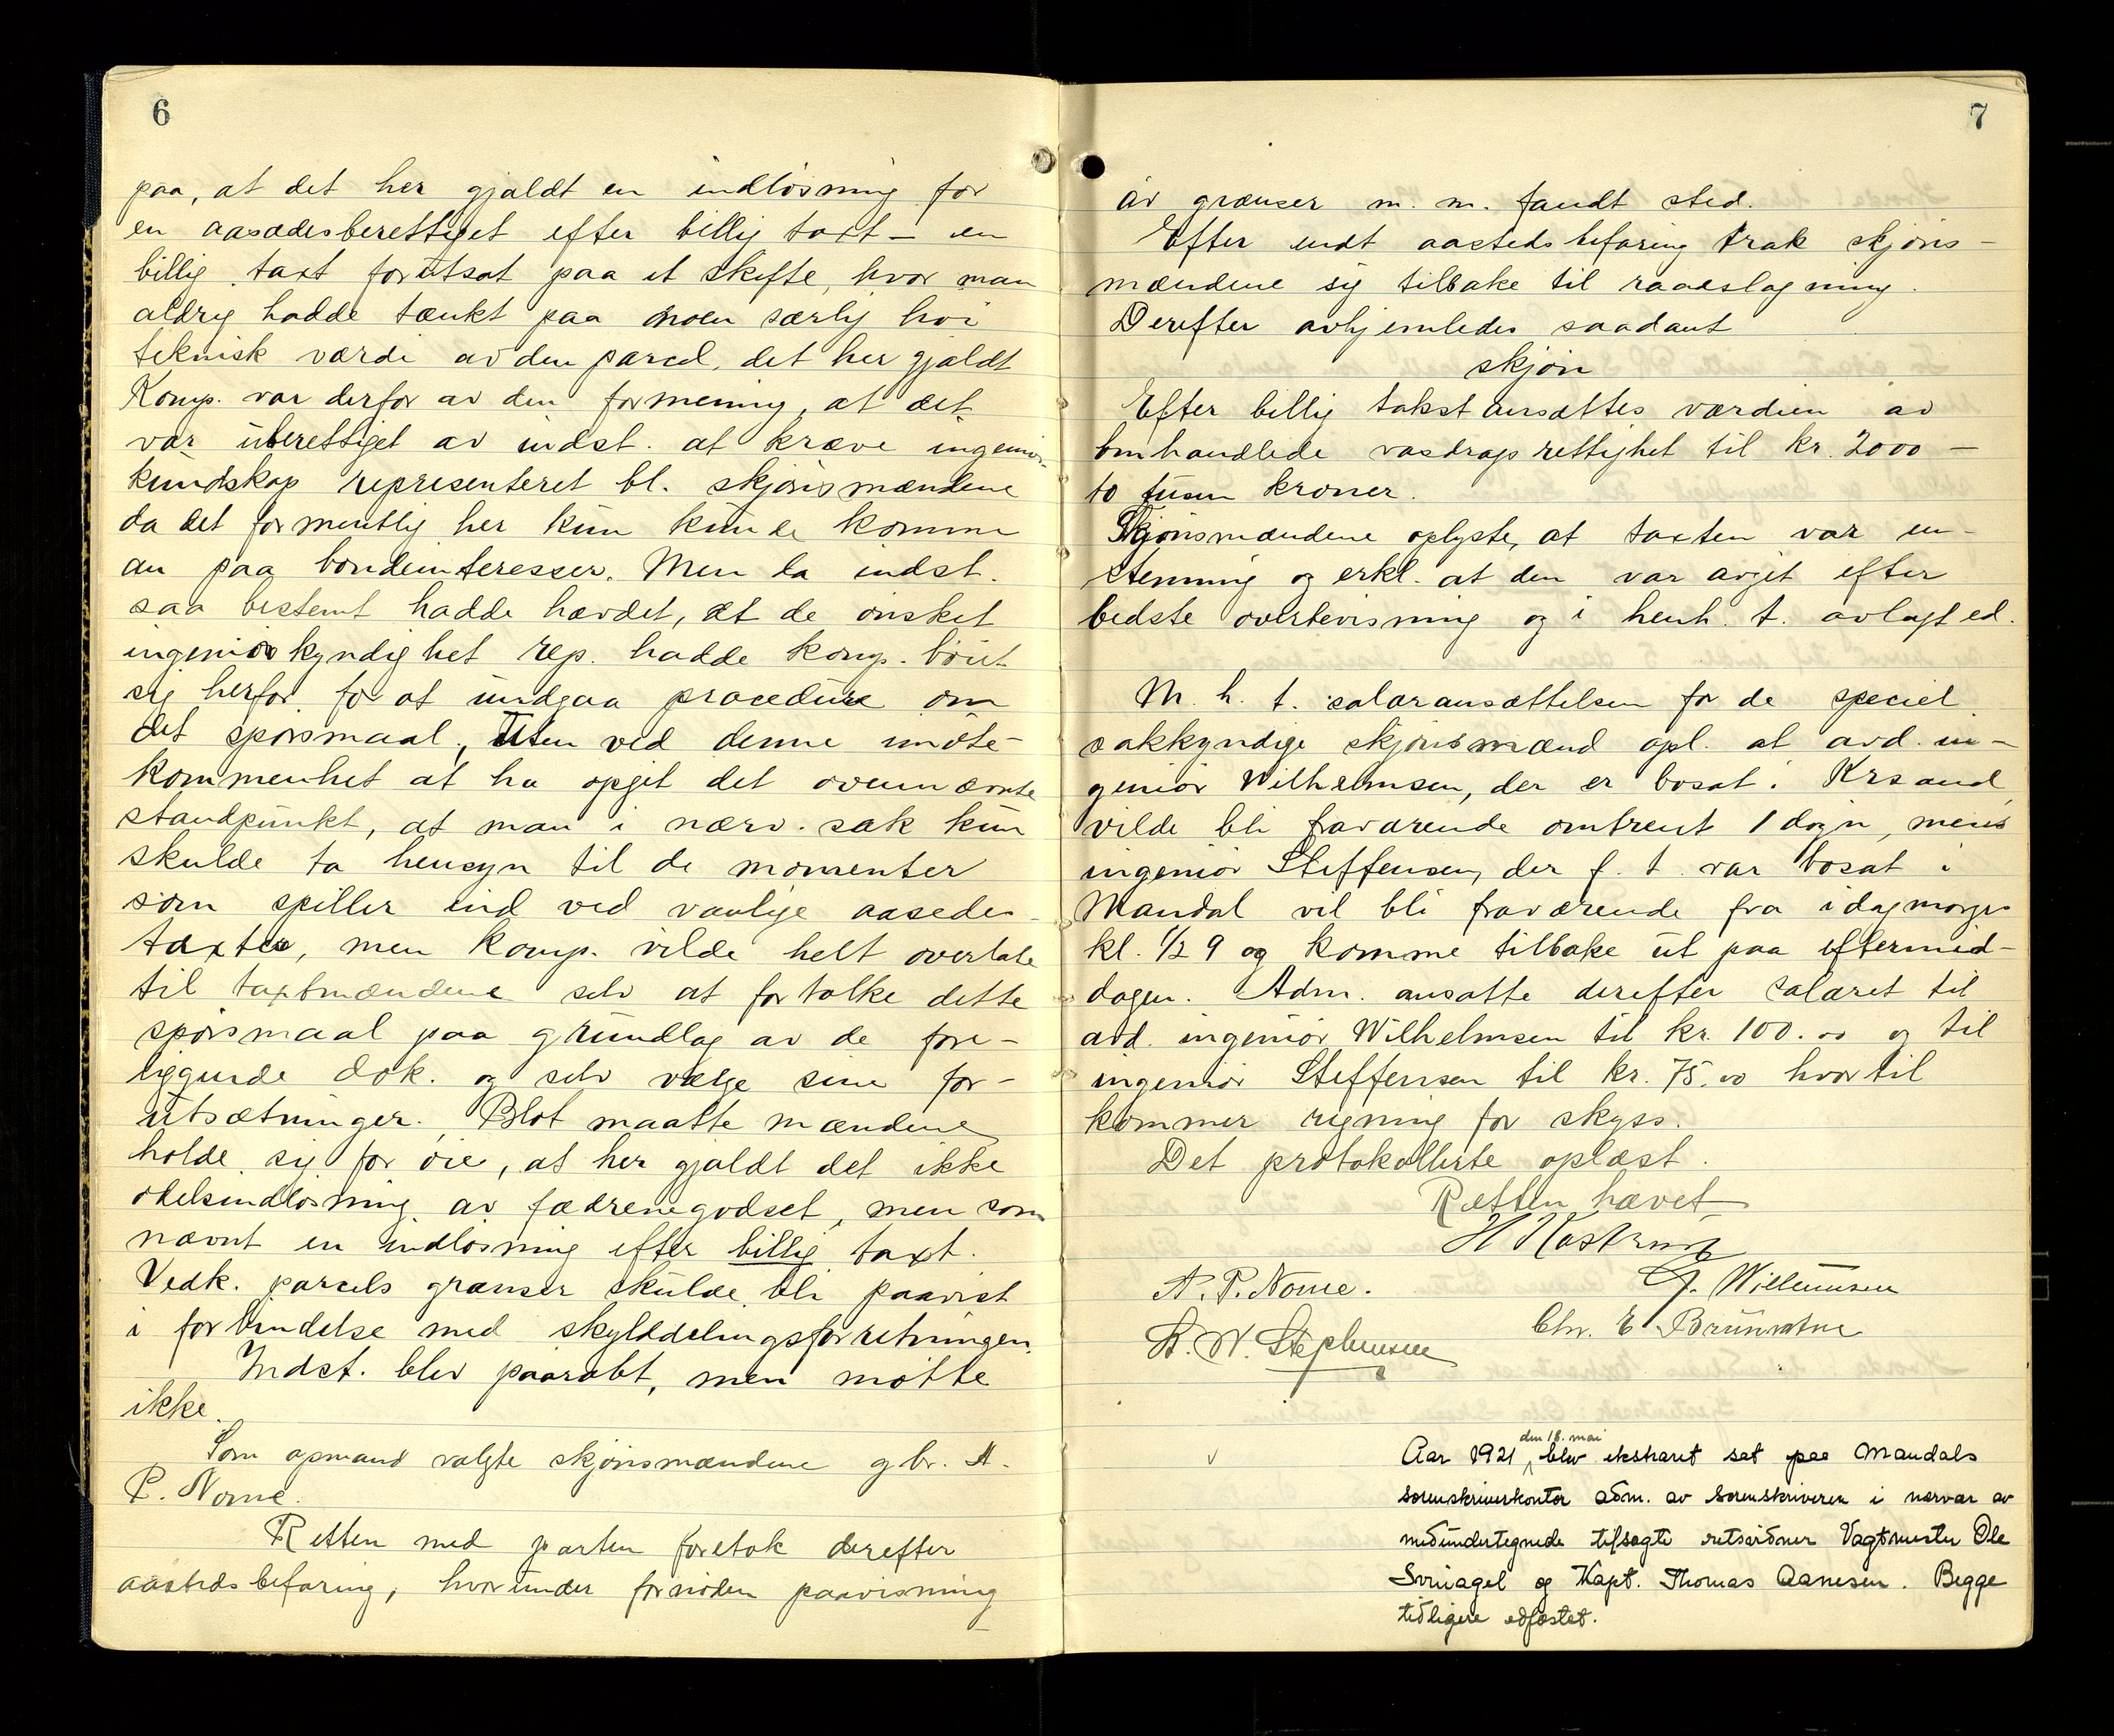 6
paa, at det her gjaldt en indlösning for
en aasædesberettiget efter billig taxt – en
billig taxt forutsat paa et skifte, hvor man
aldrig hadde tænkt paa noen særlig höi
teknisk værdi av den parcel, det her gjaldt
Komp. var derfor av den formening, at det
var uberettiget av indst. at kræve ingeniör-
kundskap representeret bl. skjönsmændene
da det formentlig her kun kunde komme
an paa bondeinteresser. Men da indst.
saa bestemt hadde hævdet, at de önsket
ingeniörkyndighet rep. hadde komp. böiet
sig herfor for at undgaa procedure om
det spörsmaal, uten ved denne imöte-
kommenhet at ha opgit det ovennævnte
standpunkt, at man i nærv. sak kun
skulde ta hensyn til de momenter
som spiller ind ved vanlige aasædes-
taxter, men komp. vilde helt overlate
til taxtmændene selv at fortolke dette
spörsmaal paa grundlag av de fore-
liggende dok. og selv vælge sine for-
utsætninger. Blot maatte mændene
holde sig for öie, at her gjaldt det ikke
odelsindlösning av fædrenegodset, men som
nævnt en indlösning efter billig taxt.
Vedk. parcels grænser skulde bli paavist
i forbindelse med skylddelingsforretningen.
Indst. blev paaropt, men mötte
ikke.
Som opmand valgte skjönsmændene gbr. A.
P. Nome.
Retten med parten foretok derefter
aastedsbefaring, hvorunder fornöden paavisning
7
av grænser m. m. fandt sted.
Efter endt aastedsbefaring trak skjöns-
mændene sig tilbake til raadslagning.
Derefter avhjemledes saadant
skjön
Efter billig takst ansættes værdien av
omhandlede vasdragsrettighet til kr. 2000 –
to tusen kroner.
Skjönsmændene oplyste, at taxten var en-
stemmig og erkl. at den var avgit efter
bedste overbevisning og i henh. t. avlagt ed.
M. h. t. salæransættelsen for de speciel
sakkyndige skjönsmænd opl. at avd. in-
geniör Wilhelmsen, der er bosat i Krsand,
vilde bli fraværende omtrent 1 dögn, mens
ingeniör Steffensen, der f. t. var bosat i
Mandal vil bli fraværende fra idagmorges
kl. 1/2 9 og komme tilbake ut paa eftermid-
dagen. Adm. ansatte derefter salæret til
avd. ingeniör Wilhelmsen til kr. 100.00 og til
ingeniör Steffensen til kr. 75.00 hvortil
kommer regning for skyss.
Det protokollerte oplæst.
Retten hævet
A. P. Nome.
Willumsen
Chr. E
Stephensen
den 18. mai
Aar 1921 blev ekstraret sat paa Mandals
sorenskriverkontor adm. av sorenskriveren i nærvær av
medundertegnede tilsagte retsvidner Vagtmester Ole
Svinagel og Kapt. Thomas Aanesen. Begge
tidligere edfæstet.